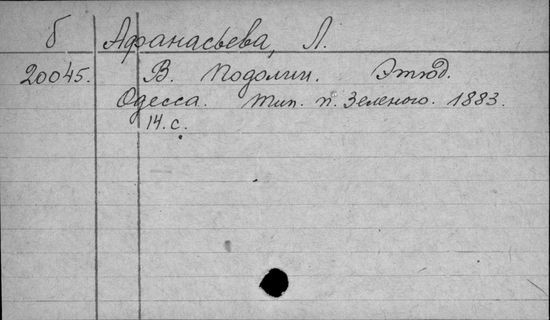 б Афанасьева, Л.
20045. В. Подолии. Этюд.
Одесса. Тип. П. Зеленого. 1883.
14. с.